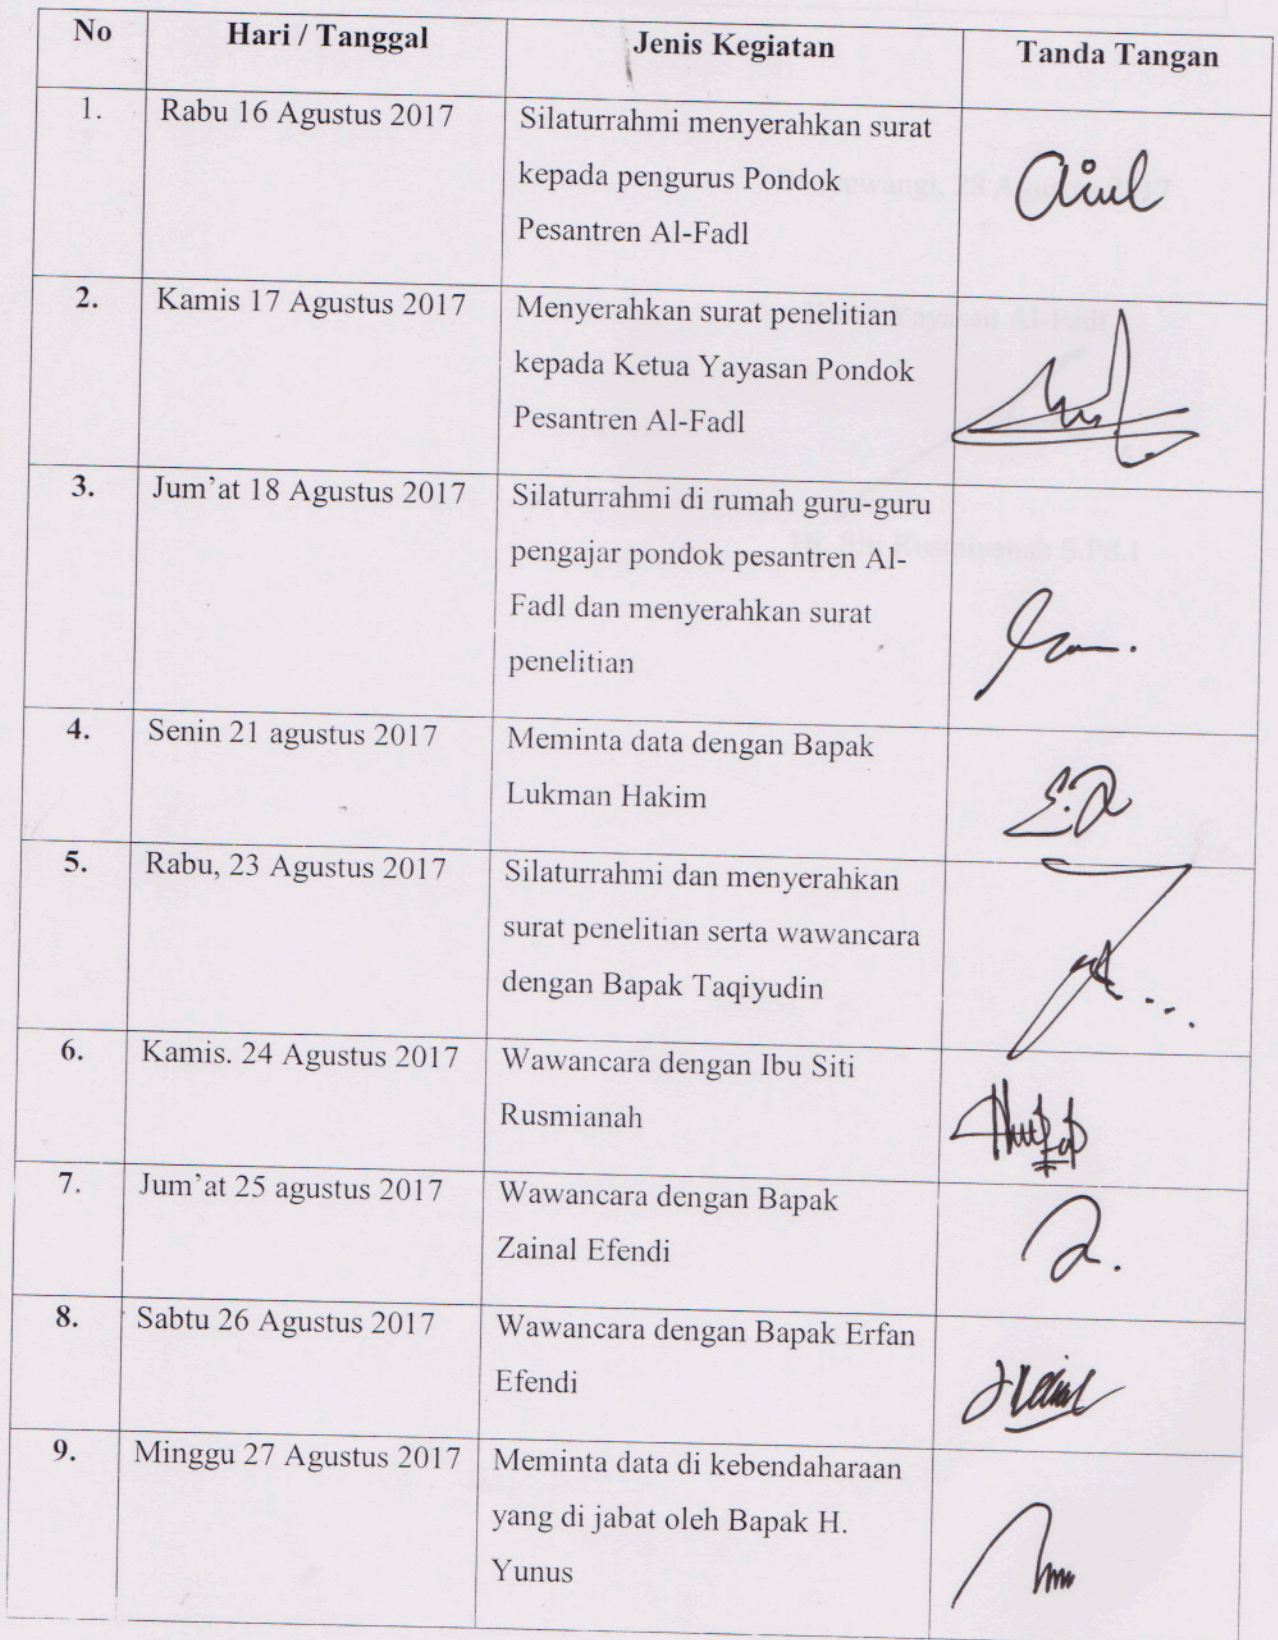 No Hari / Tanggal Jenis Kegiatan Tanda Tangan
1. Rabu 16 Agustus 2017 Silaturrahmi menyerahkan surat
kepada pengurus Pondok
Pesantren Al-Fadl
2. Kamis 17 Agustus 2017 Menyerahkan surat penelitian
kepada Ketua Yayasan Pondok
Pesantren Al-Fadl
3. Jum'at 18 Agustus 2017 Silaturrahmi di rumah guru-guru
pengajar pondok pesantren Al-
Fadl dan menyerahkan surat
penelitian
4. Senin 21 agustus 2017 Meminta data dengan Bapak
Lukman Hakim
5. Rabu, 23 Agustus 2017 Silaturrahmi dan menyerahkan
surat penelitian serta wawancara
dengan Bapak Taqiyudin
6. Kamis. 24 Agustus 2017 Wawancara dengan Ibu Siti
Rusmianah
7. Jum'at 25 agustus 2017 Wawancara dengan Bapak
Zainal Efendi
8. Sabtu 26 Agustus 2017 Wawancara dengan Bapak Erfan
Efendi
9. Minggu 27 Agustus 2017 Meminta data di kebendaharaan
yang di jabat oleh Bapak H.
Yunus